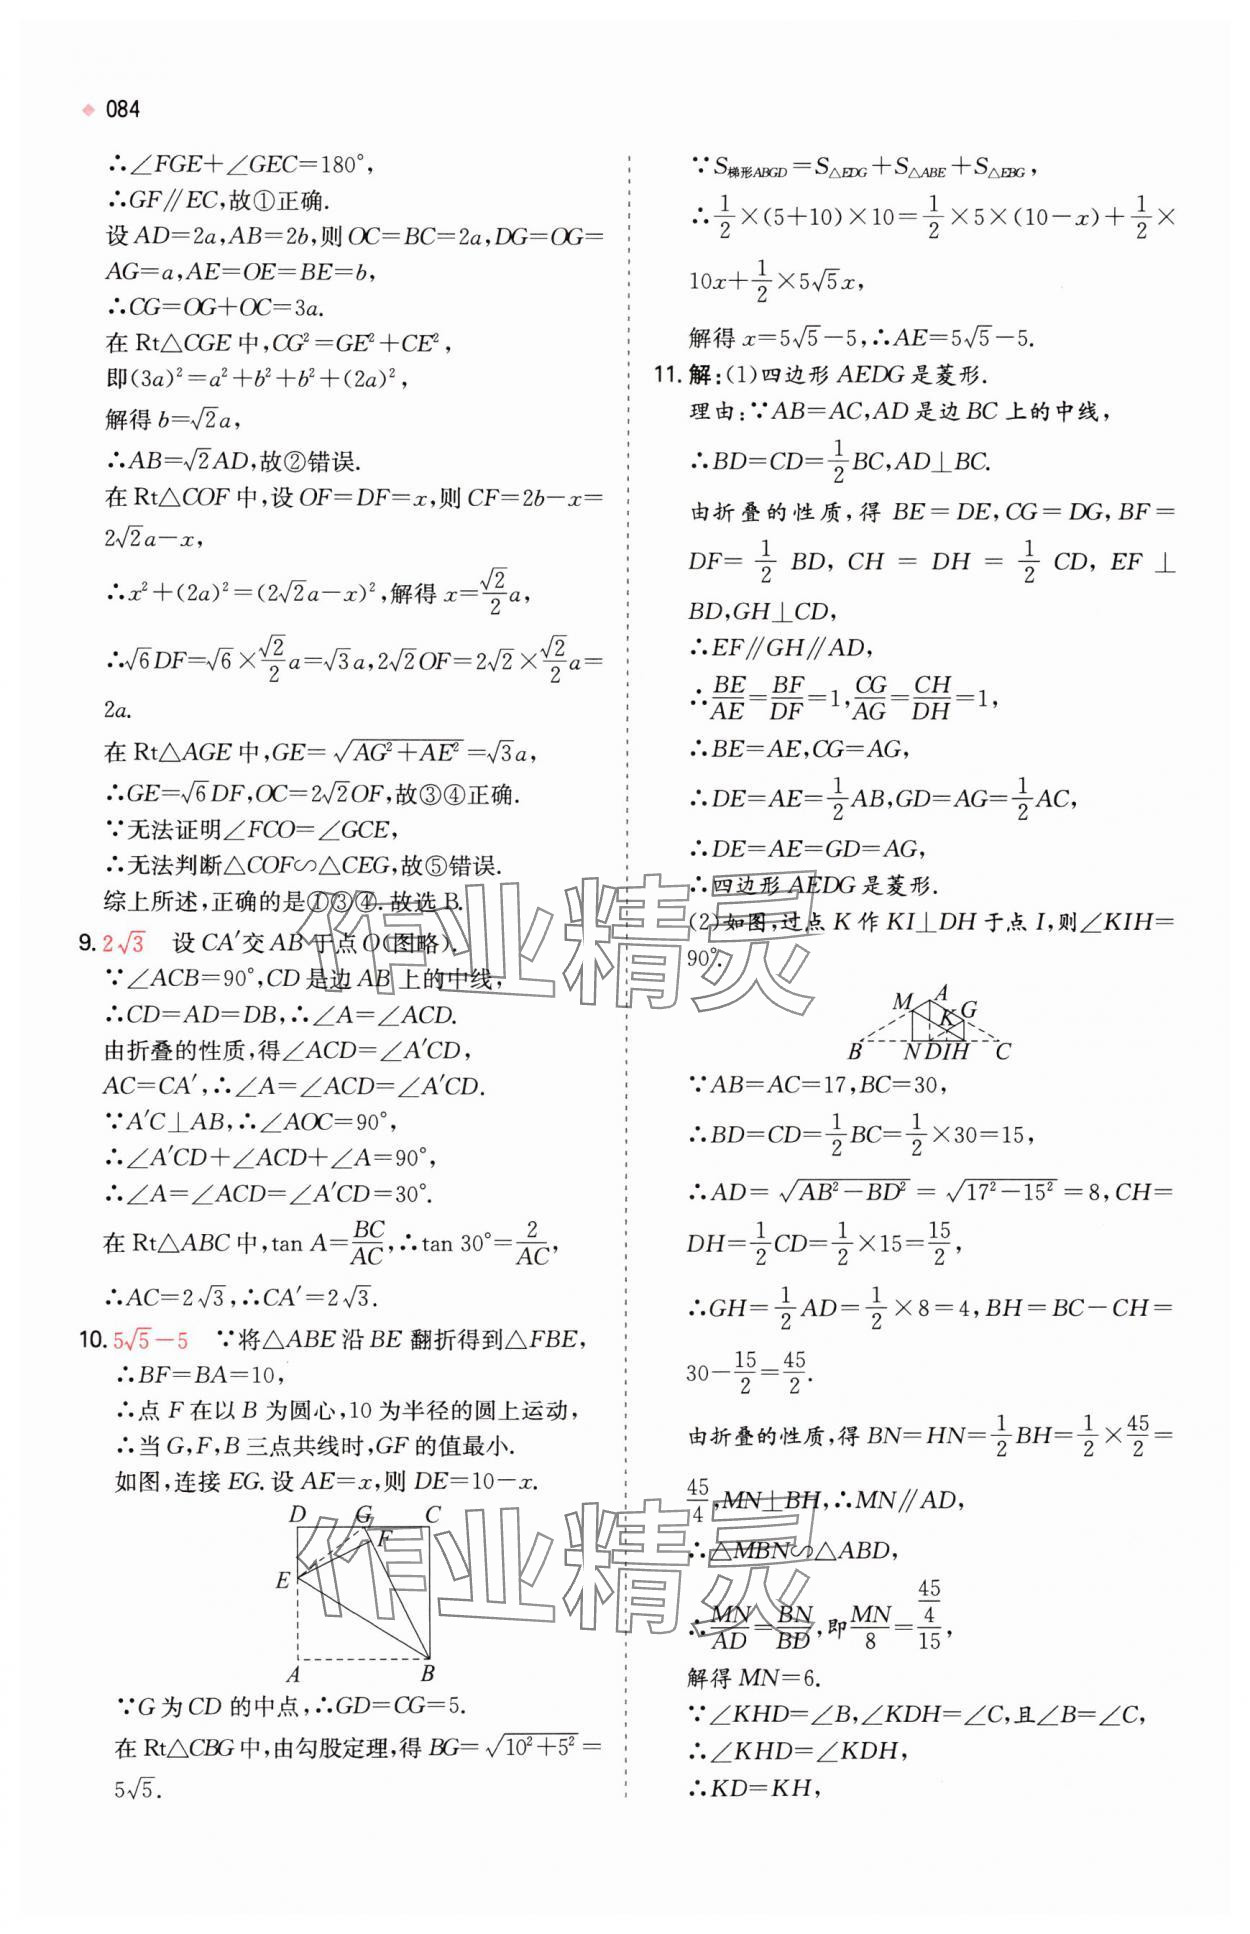 084
∴∠FGE+∠GEC=180°,
∴GF∥EC,故①正确.
设 AD=2a,AB=2b,则OC=BC=2a,DG=OG=
AG=a,AE=OE=BE=b,
∴CG=OG+OC=3a.
在 Rt△CGE 中,CG²=GE²+CE²,
即(3a)²=a²+b²+b²+(2a)²,
解得 b=√2a,
∴AB=√2AD,故②错误.
在 Rt△COF 中,设 OF=DF=x,则 CF=2b-x=
2√2a-x,
∴x²+(2a)²=(2√2a-x)²,解得 x=√2/2a,
∴√6DF=√6×√2/2a=√3a,2√2OF=2√2×√2/2a=
2a.
在 Rt△AGE 中,GE=√(AG²+AE²)=√3a,
∴GE=√6DF,OC=2√2OF,故③④正确.
∵无法证明∠FCO=∠GCE,
∴无法判断△COF∽△CEG,故⑤错误.
综上所述,正确的是①③④.故选 B.
9. 2√3 设 CA′交 AB 于点 O(图略).
∵∠ACB=90°,CD 是边 AB 上的中线,
∴CD=AD=DB,∴∠A=∠ACD.
由折叠的性质,得∠ACD=∠A′CD,
AC=CA′,∴∠A=∠ACD=∠A′CD.
∵A′C⊥AB,∴∠AOC=90°,
∴∠A′CD+∠ACD+∠A=90°,
∴∠A=∠ACD=∠A′CD=30°.
在 Rt△ABC 中,tan A=BC/AC,∴tan 30°=2/AC,
∴AC=2√3,∴CA′=2√3.
10. 5√5-5 ∵将△ABE 沿 BE 翻折得到△FBE,
∴BF=BA=10,
∴点 F 在以 B 为圆心,10 为半径的圆上运动,
∴当 G,F,B 三点共线时,GF 的值最小.
如图,连接 EG.设 AE=x,则 DE=10-x.
D G C
F
E
A B
∵G 为 CD 的中点,∴GD=CG=5.
在 Rt△CBG 中,由勾股定理,得 BG=√(10²+5²)=
5√5.
∵S梯形ABGD=S△EDG+S△ABE+S△EBG,
∴1/2×(5+10)×10=1/2×5×(10-x)+1/2×
10x+1/2×5√5x,
解得 x=5√5-5,∴AE=5√5-5.
11. 解:(1)四边形 AEDG 是菱形.
理由:∵AB=AC,AD 是边 BC 上的中线,
∴BD=CD=1/2BC,AD⊥BC.
由折叠的性质,得 BE=DE,CG=DG,BF=
DF=1/2BD,CH=DH=1/2CD,EF⊥
BD,GH⊥CD,
∴EF∥GH∥AD,
∴BE/AE=BF/DF=1,CG/AG=CH/DH=1,
∴BE=AE,CG=AG,
∴DE=AE=1/2AB,GD=AG=1/2AC,
∴DE=AE=GD=AG,
∴四边形 AEDG 是菱形.
(2)如图,过点 K 作 KI⊥DH 于点 I,则∠KIH=
90°.
M A
K G
B N D I H C
∵AB=AC=17,BC=30,
∴BD=CD=1/2BC=1/2×30=15,
∴AD=√(AB²-BD²)=√(17²-15²)=8,CH=
DH=1/2CD=1/2×15=15/2,
∴GH=1/2AD=1/2×8=4,BH=BC-CH=
30-15/2=45/2.
由折叠的性质,得 BN=HN=1/2BH=1/2×45/2=
45/4,MN⊥BH,∴MN∥AD,
∴△MBN∽△ABD,
∴MN/AD=BN/BD,即MN/8=(45/4)/15,
解得 MN=6.
∵∠KHD=∠B,∠KDH=∠C,且∠B=∠C,
∴∠KHD=∠KDH,
∴KD=KH,
作业精灵
作业精灵